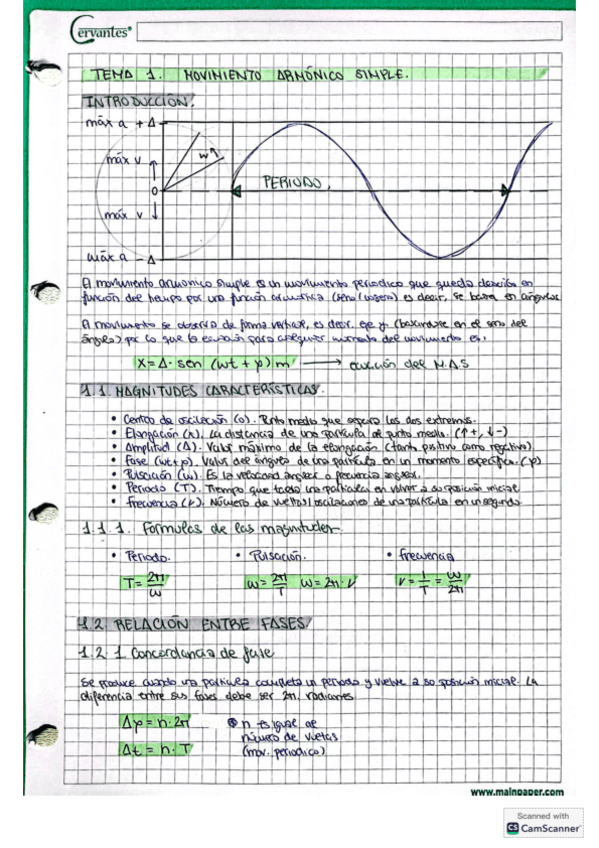 Cervantes®
TEMA 1. MOVIMIENTO ARMÓNICO SIMPLE.
INTRODUCCIÓN.
máx a +A
máx v ↑
w
0
PERIODO.
máx v ↓
máx a -A
El movimiento armonico simple es un movimiento periodico que queda descrito en
función del tiempo por una función armonica (seno/coseno) es decir, se basa en ángulos
El movimiento se observa de forma vertical, es decir, eje y (basandose en el seno del
ángulo) por lo que la ecuación para cualquier momento del movimiento es:
x = A · sen (wt + φ) m → ecuación del M.A.S
1.1. MAGNITUDES CARACTERÍSTICAS.
• Centro de oscilación (o). Punto medio que separa los dos extremos.
• Elongación (x). La distancia de una partícula al punto medio. (↑+, ↓-)
• Amplitud (A). Valor máximo de la elongación (tanto positivo como negativo).
• Fase (wt+φ). Valor del ángulo de una partícula en un momento específico. (φ)
• Pulsación (w). Es la velocidad angular o frecuencia angular.
• Periodo (T). Tiempo que tarda una partícula en volver a su posición inicial
• Frecuencia (ν). Número de vueltas/oscilaciones de una partícula en un segundo.
1.1.1. Fórmulas de las magnitudes.
• Periodo. • Pulsación. • Frecuencia
T = 2π/w w = 2π/T w = 2π · ν ν = 1/T = w/2π
1.2. RELACIÓN ENTRE FASES
1.2.1. Concordancia de fase
Se produce cuando una partícula completa un periodo y vuelve a su posición inicial. La
diferencia entre sus fases debe ser 2π radianes
Δφ = n · 2π n es igual al
número de vueltas
Δt = n · T (mov. periodico)
www.mainpaper.com
Scanned with
CS CamScanner